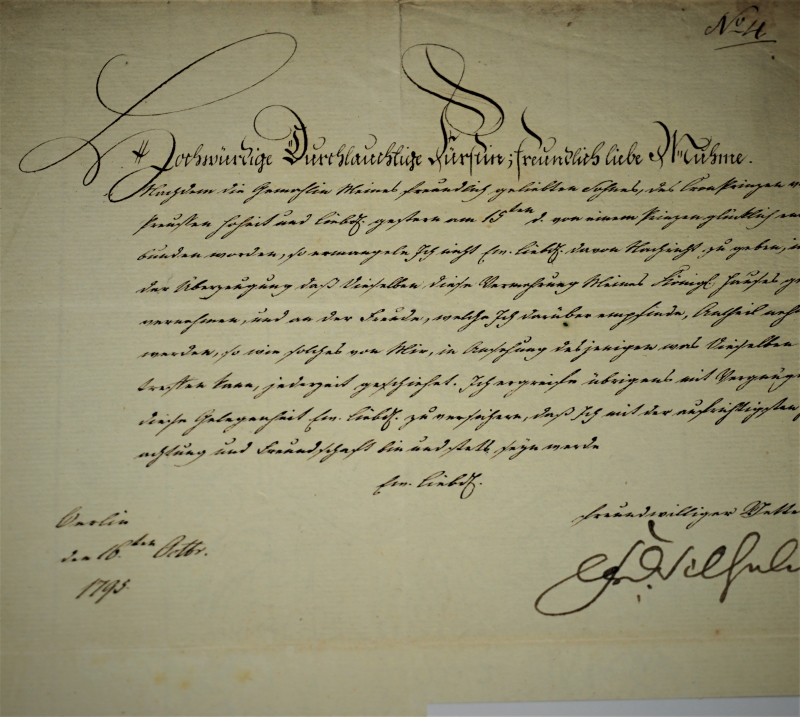 No 4
Hochwürdige Durchlauchtige Fürstin, freundlich liebe Muhme.
Nachdem die Gemahlin Meines freundlich geliebten Sohnes, des Cron Prinzen v
Preußen Hoheit und Liebd. gestern am 15ten d. von einem Prinzen glücklich en
bunden worden, so ermangele Ich nicht Ew. Liebd. davon Nachricht zu geben, in
der Überzeugung daß Dieselben diese Vermehrung Meines Königl. Hauses ge
vernehmen, und an der Freude, welche Ich darüber empfinde, Antheil neh
werden, so wie solches von Mir, in Ansehung desjenigen was Dieselben
treffen kann, jederzeit geschiehet. Ich ergreife übrigens mit Vergnüge
diese Gelegenheit Ew. Liebd. zu versichern, daß Ich mit der aufrichtigsten
achtung und Freundschaft bin und stets seyn werde
Ew. Liebd.
Berlin
den 16ten Octbr.
1795.
freundwilliger Vette
Fr Wilhelm